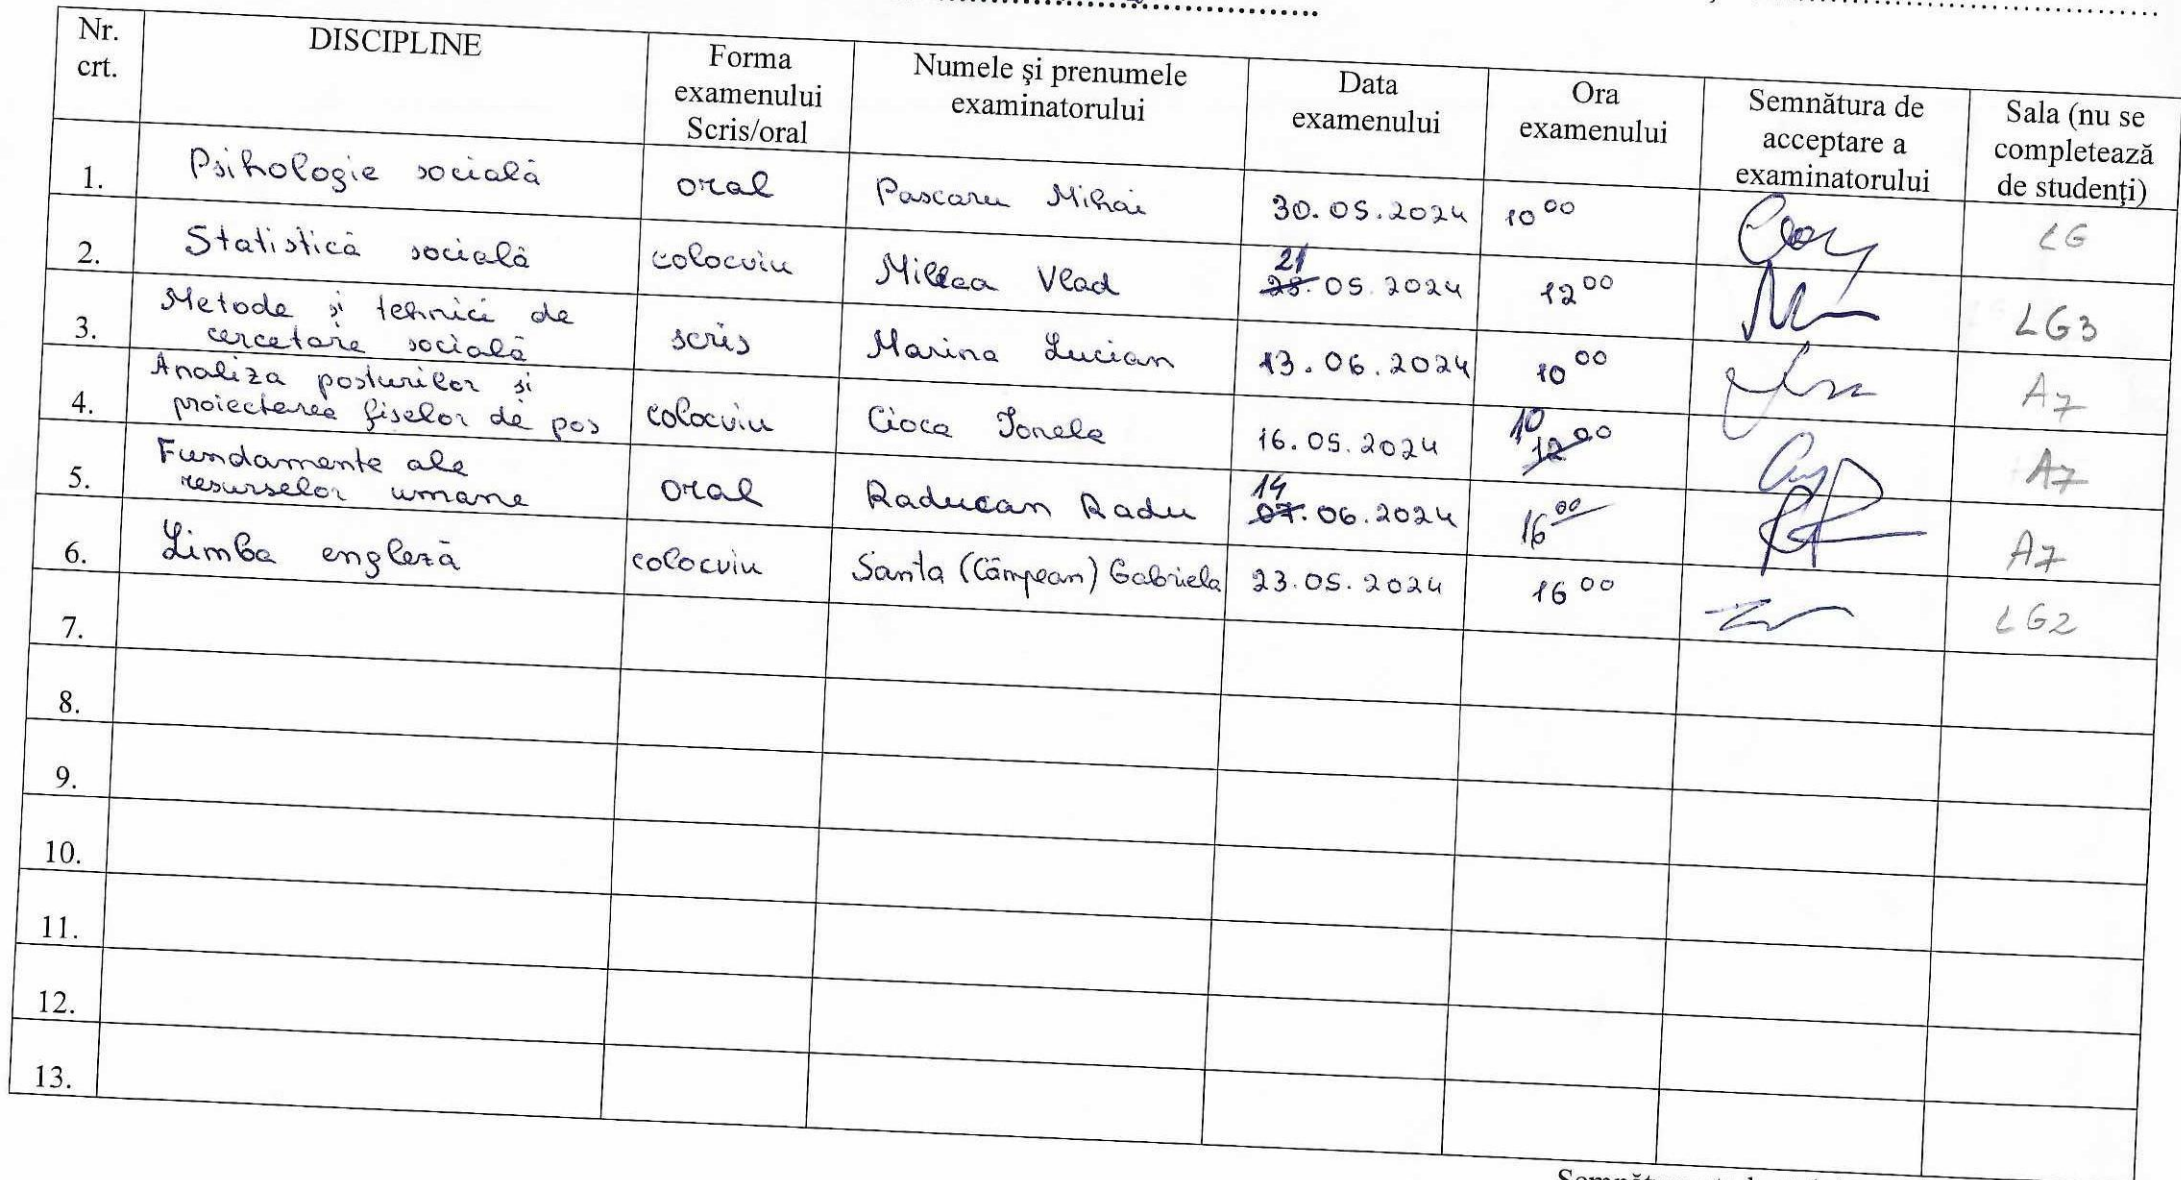 Nr. crt. DISCIPLINE Forma examenului Scris/oral Numele şi prenumele examinatorului Data examenului Ora examenului Semnătura de acceptare a examinatorului Sala (nu se completează de studenţi)
1. Psihologie socială oral Pascaru Mihai 30.05.2024 10 00 LG
2. Statistică socială colocviu Millea Vlad 21 25.05.2024 12 00 LG3
3. Metode și tehnici de cercetare socială scris Marina Lucian 13.06.2024 10 00 A7
4. Analiza posturilor și proiectarea fiselor de pos colocviu Cioca Ionela 16.05.2024 10 12 00 A7
5. Fundamente ale resurselor umane oral Raducan Radu 14 07.06.2024 16 00 A7
6. Limba engleză colocviu Santa (Câmpean) Gabriela 23.05.2024 16 00 LG2
7.
8.
9.
10.
11.
12.
13.